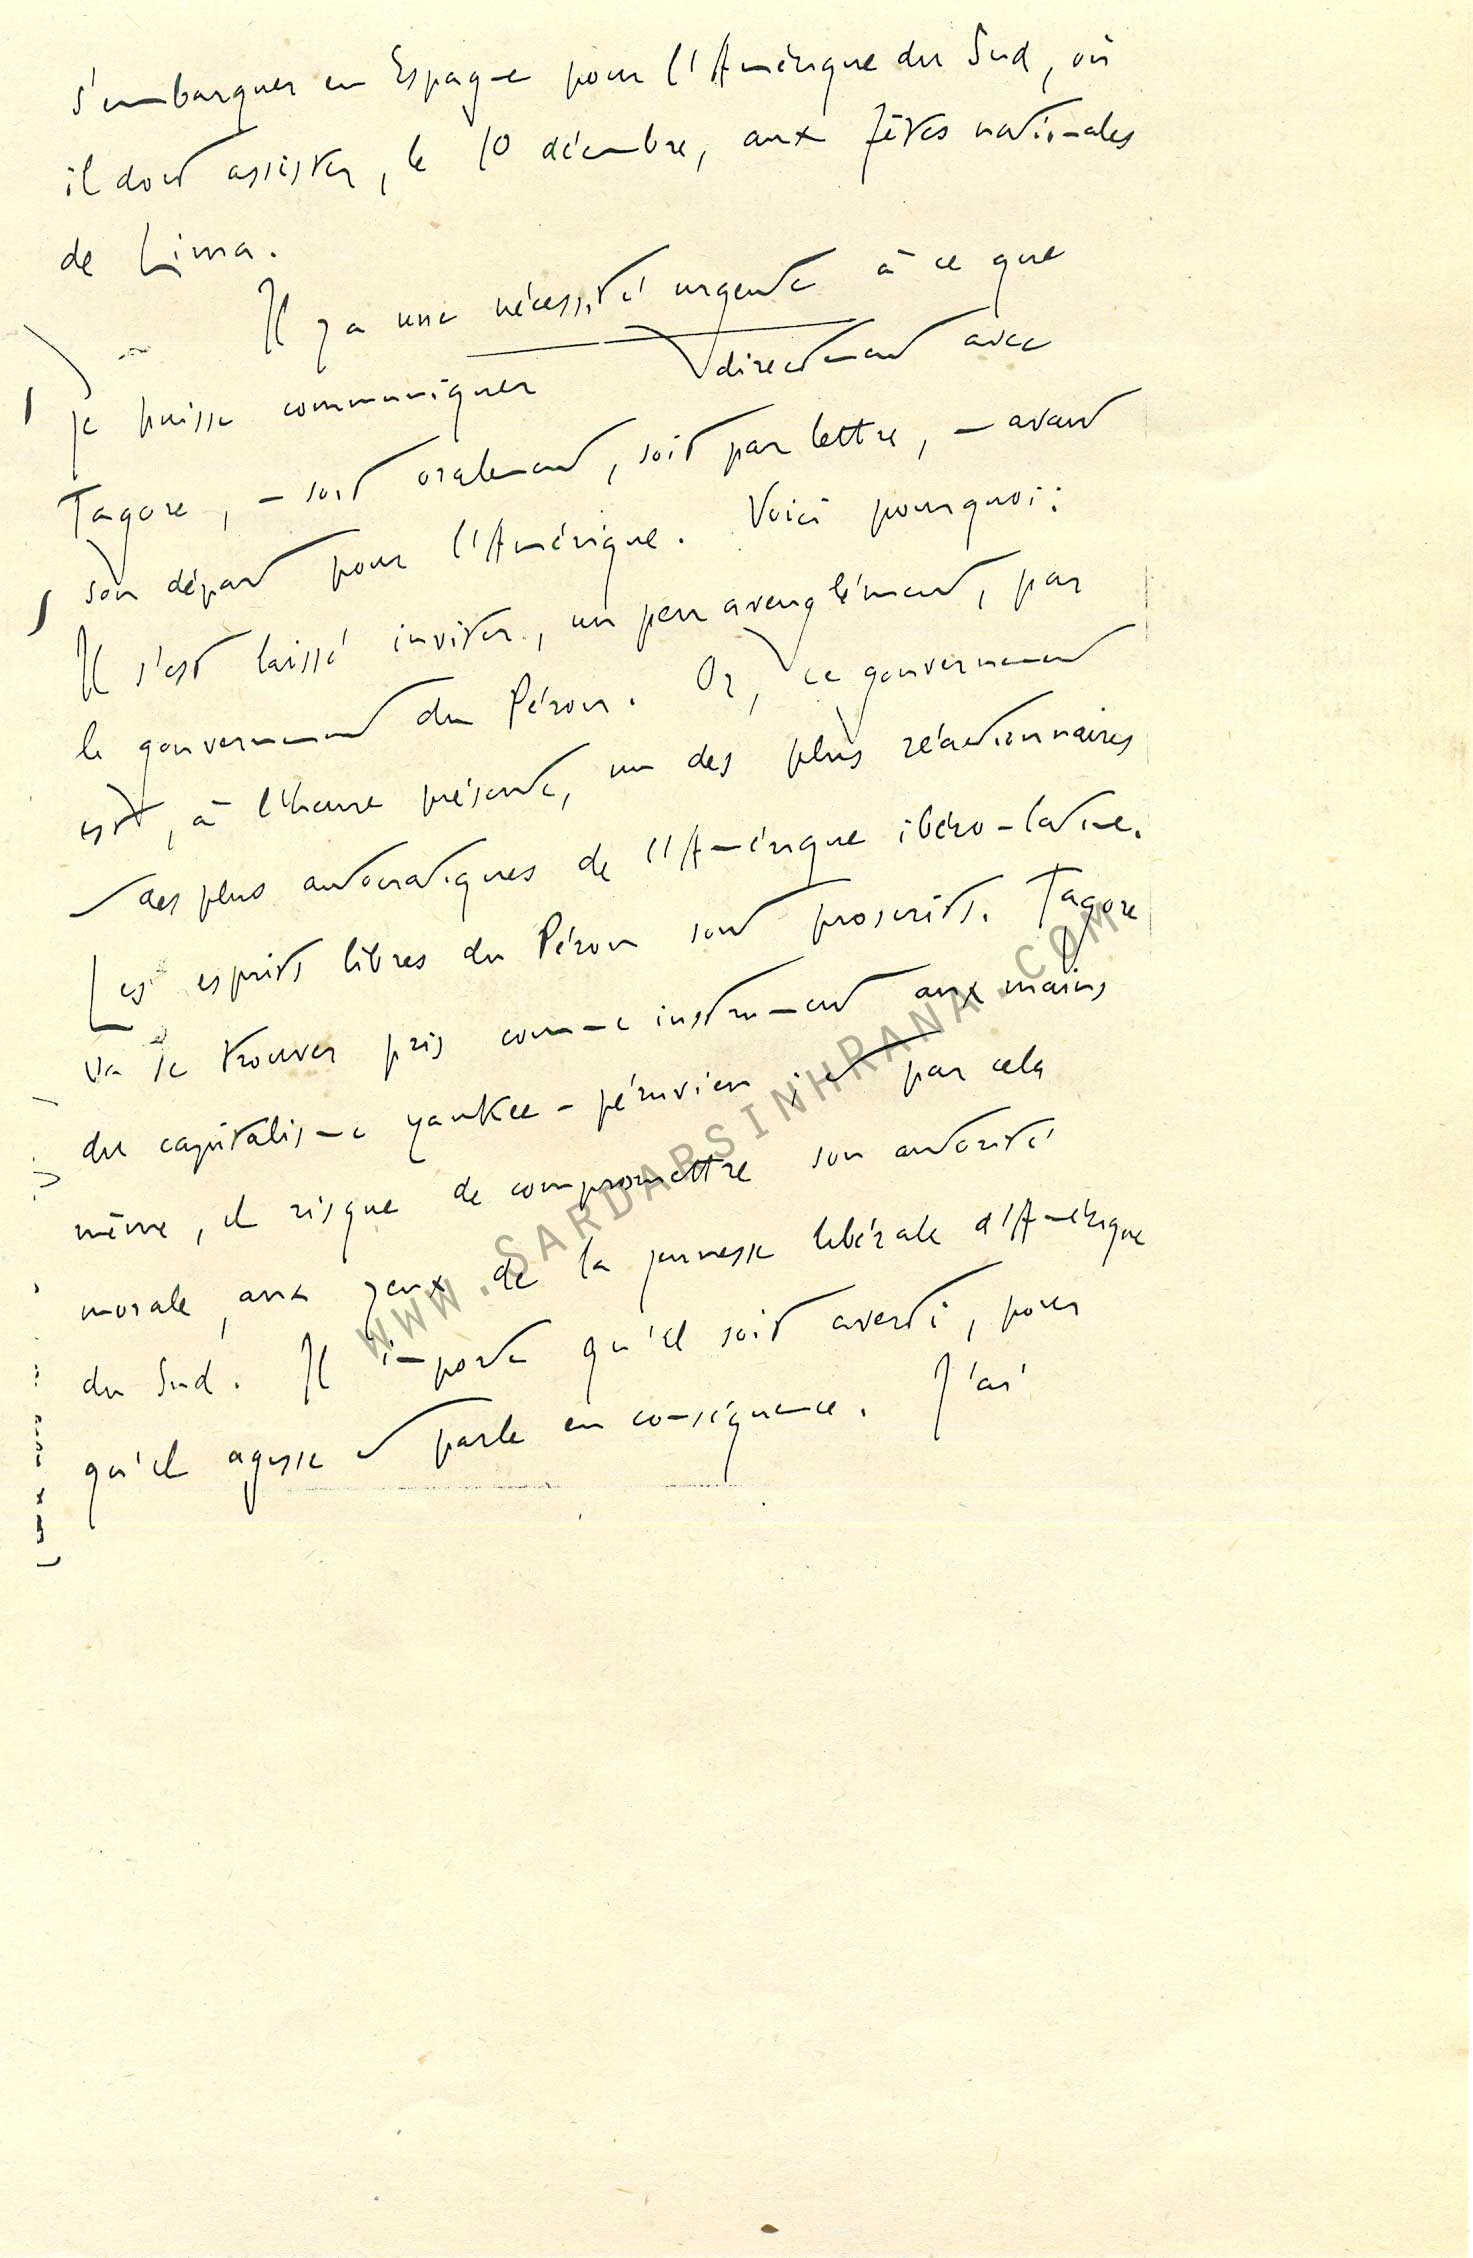 s'embarquer en Espagne pour l'Amérique du Sud, où
il doit assister, le 10 décembre, aux fêtes nationales
de Lima.
Il y a une nécessité urgente à ce que
je puisse communiquer directement avec
Tagore, – soit oralement, soit par lettre, – avant
son départ pour l'Amérique. Voici pourquoi :
Il s'est laissé inviter, un peu aveuglément, par
le gouvernement du Pérou. Or, ce gouvernement
est, à l'heure présente, un des plus réactionnaires
et des plus autocratiques de l'Amérique ibéro-latine.
Les esprits libres du Pérou sont proscrits. Tagore
va se trouver pris comme instrument aux mains
du capitalisme yankee-péruvien ; et par cela
même, il risque de compromettre son autorité
morale, aux yeux de la jeunesse libérale d'Amérique
du Sud. Il importe qu'il soit averti, pour
qu'il agisse et parle en conséquence. J'ai
WWW.SARDARSINHRANA.COM